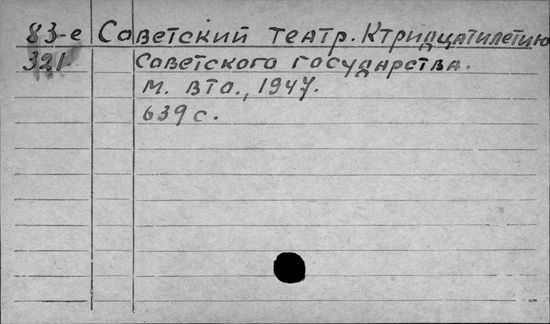 83-е Советский театр. К тридцатилетию
321 Советского государства.
М. ВТО., 1947.
639 с.